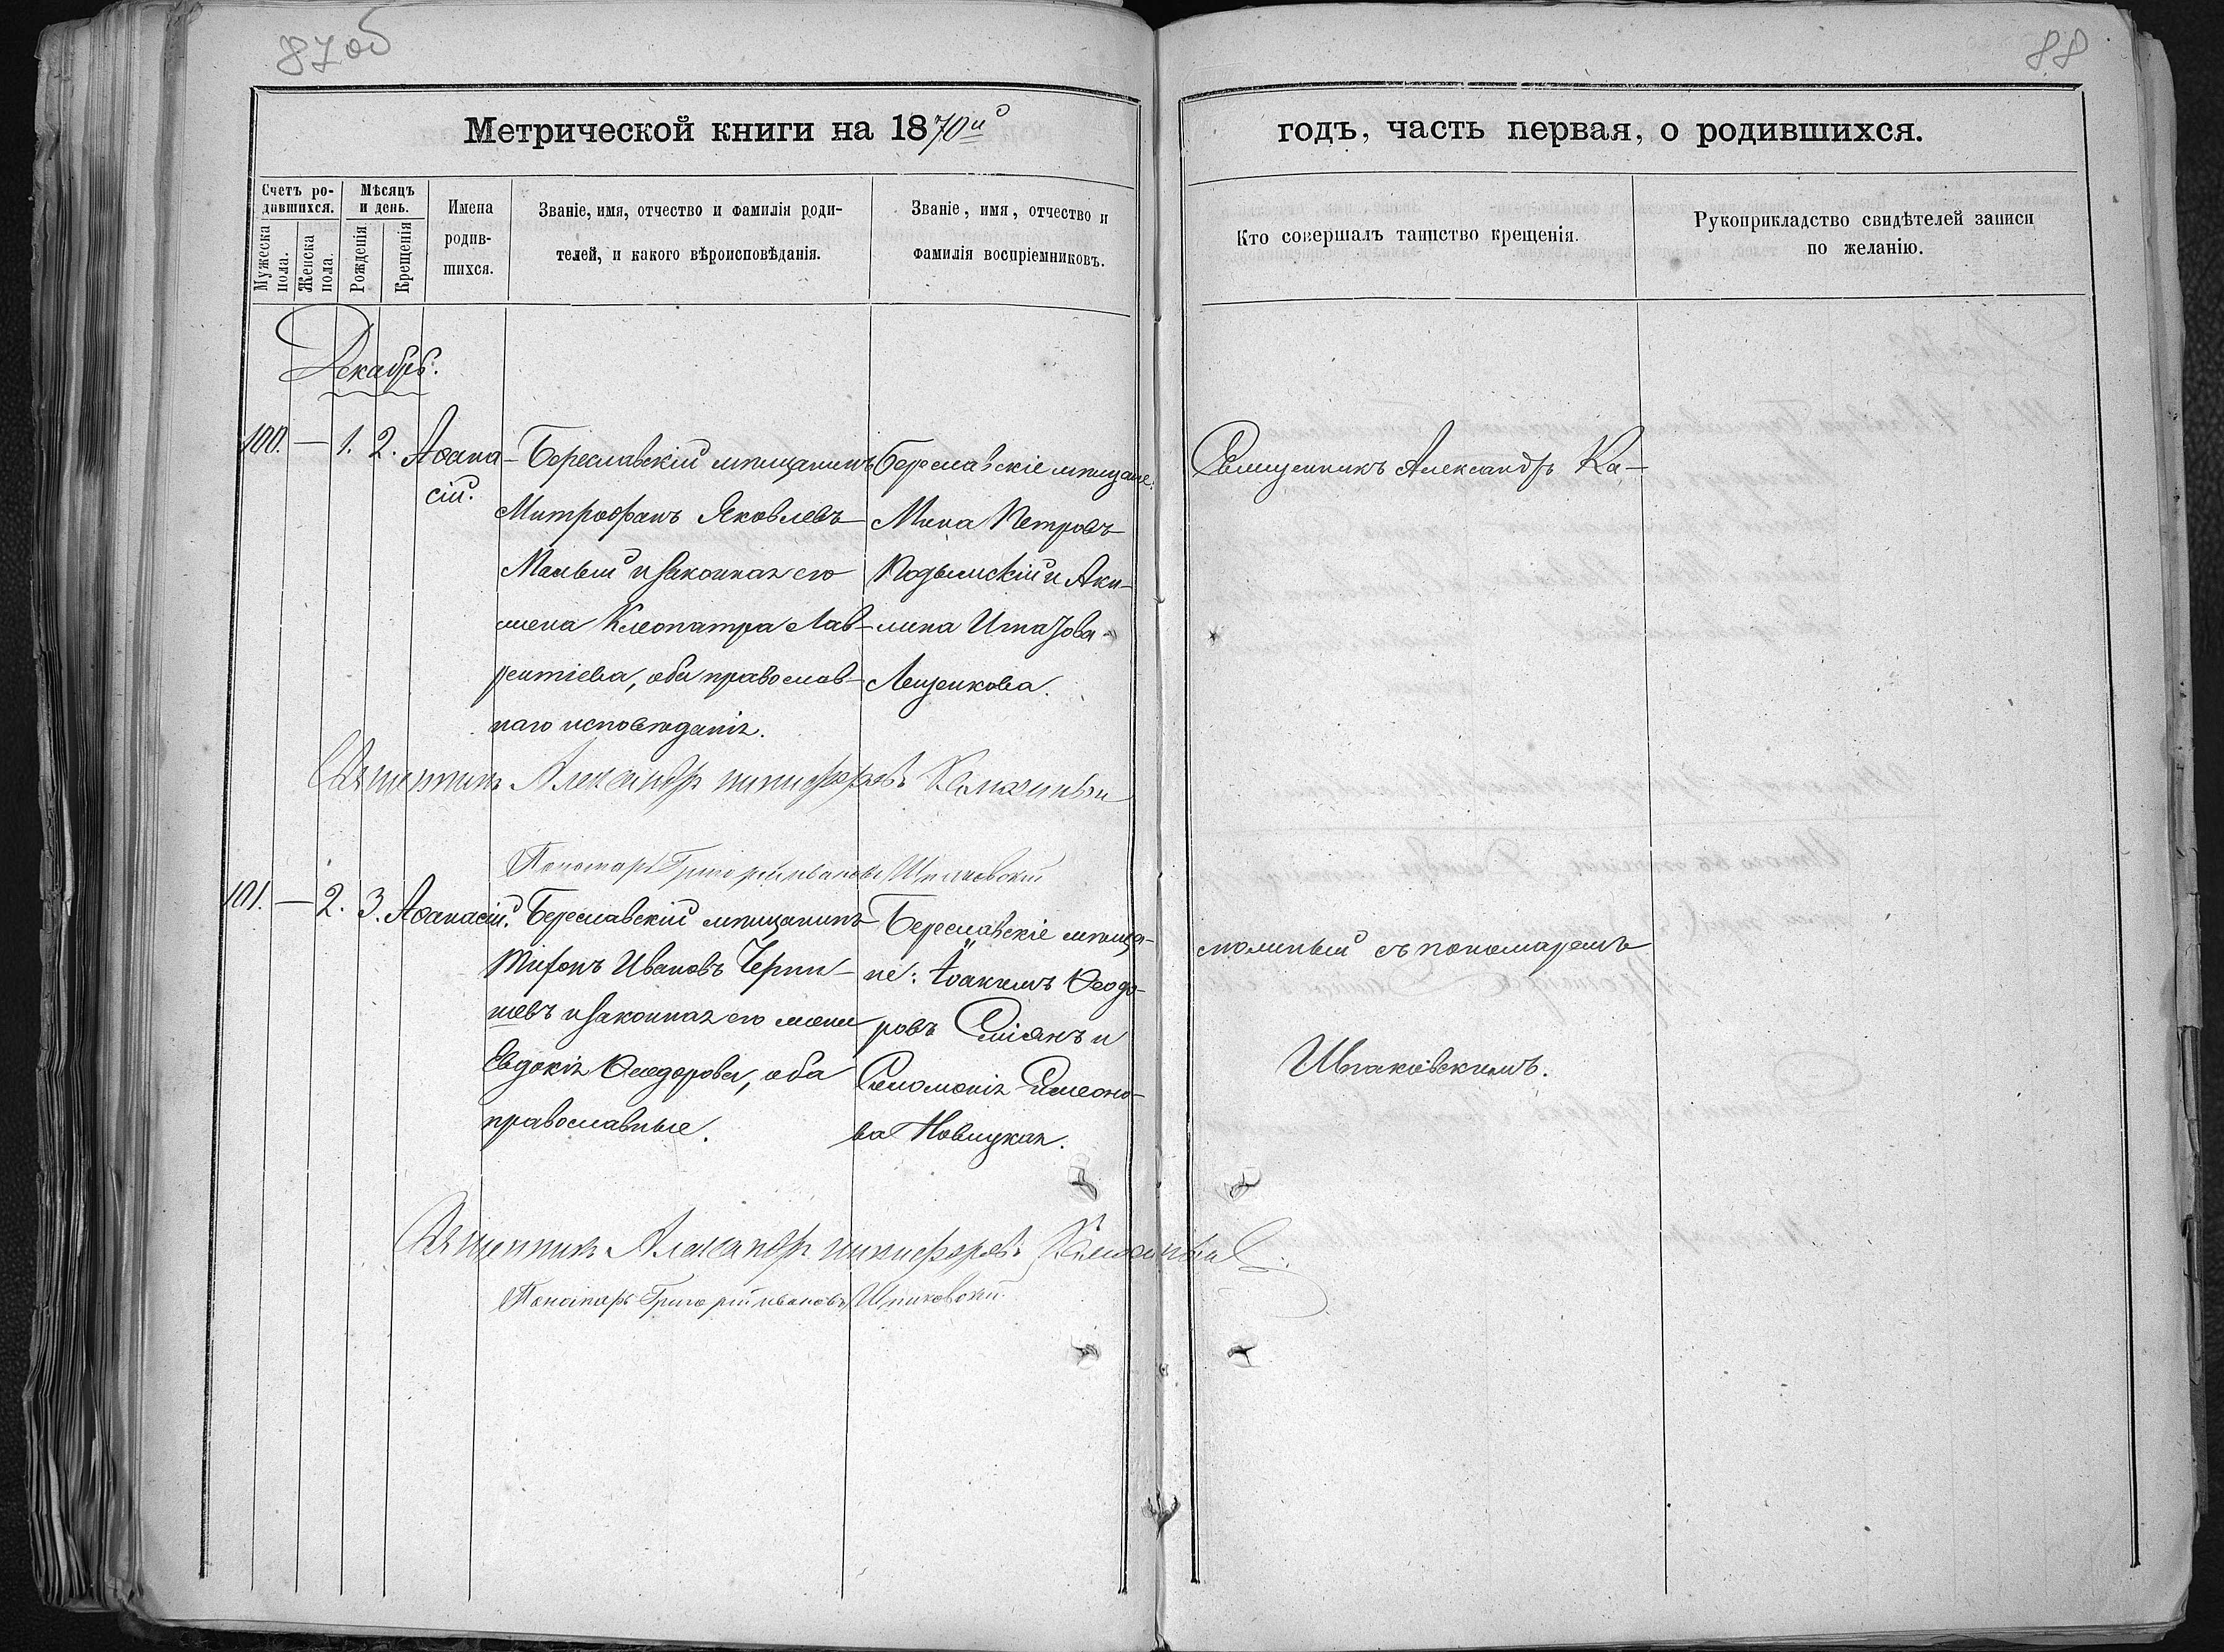 87об
88
Метрической книги на 1870й
годъ, часть первая, о родившихся.
Счетъ родившихся.
Мужеска пола.
Женска пола.
Мѣсяцъ и день.
Рожденія.
Крещенія.
Имена родившихся.
Званіе, имя, отчество и фамилія родителей, и какого вѣроисповѣданія.
Званіе, имя, отчество и фамилія воспріемниковъ.
Кто совершалъ таинство крещенія.
Рукоприкладство свидѣтелей записи по желанію.
Декабрь.
100. — 1. 2. Аѳана-
сій.
Береславскій мѣщанинъ
Митрофанъ Яковлевъ
Малый и законная его
жена Клеопатра Лав-
рентіева, оба православ-
наго исповѣданія.
Береславскіе мѣщане:
Мина Петровъ
Кодымскій и Аки-
лина
Лещенкова.
Священникъ Александръ Ка-
Священникъ Александръ Никифоровъ
Пономарь Григорій Ивановъ Шпаковскій
101. — 2. 3. Аѳанасій.
Береславскій мѣщанинъ
Тихонъ Ивановъ Черни-
шевъ и законная его жена
Евдокія Ѳеодорова, оба
православные.
Береславскіе мѣща-
не: Іоакимъ Ѳеодо-
ровъ и
Соломонія Симеоно-
ва Новицкая.
молиный съ пономаремъ
Шпаковскимъ.
Священникъ Александръ Никифоровъ
Пономарь Григорій Ивановъ Шпаковскій